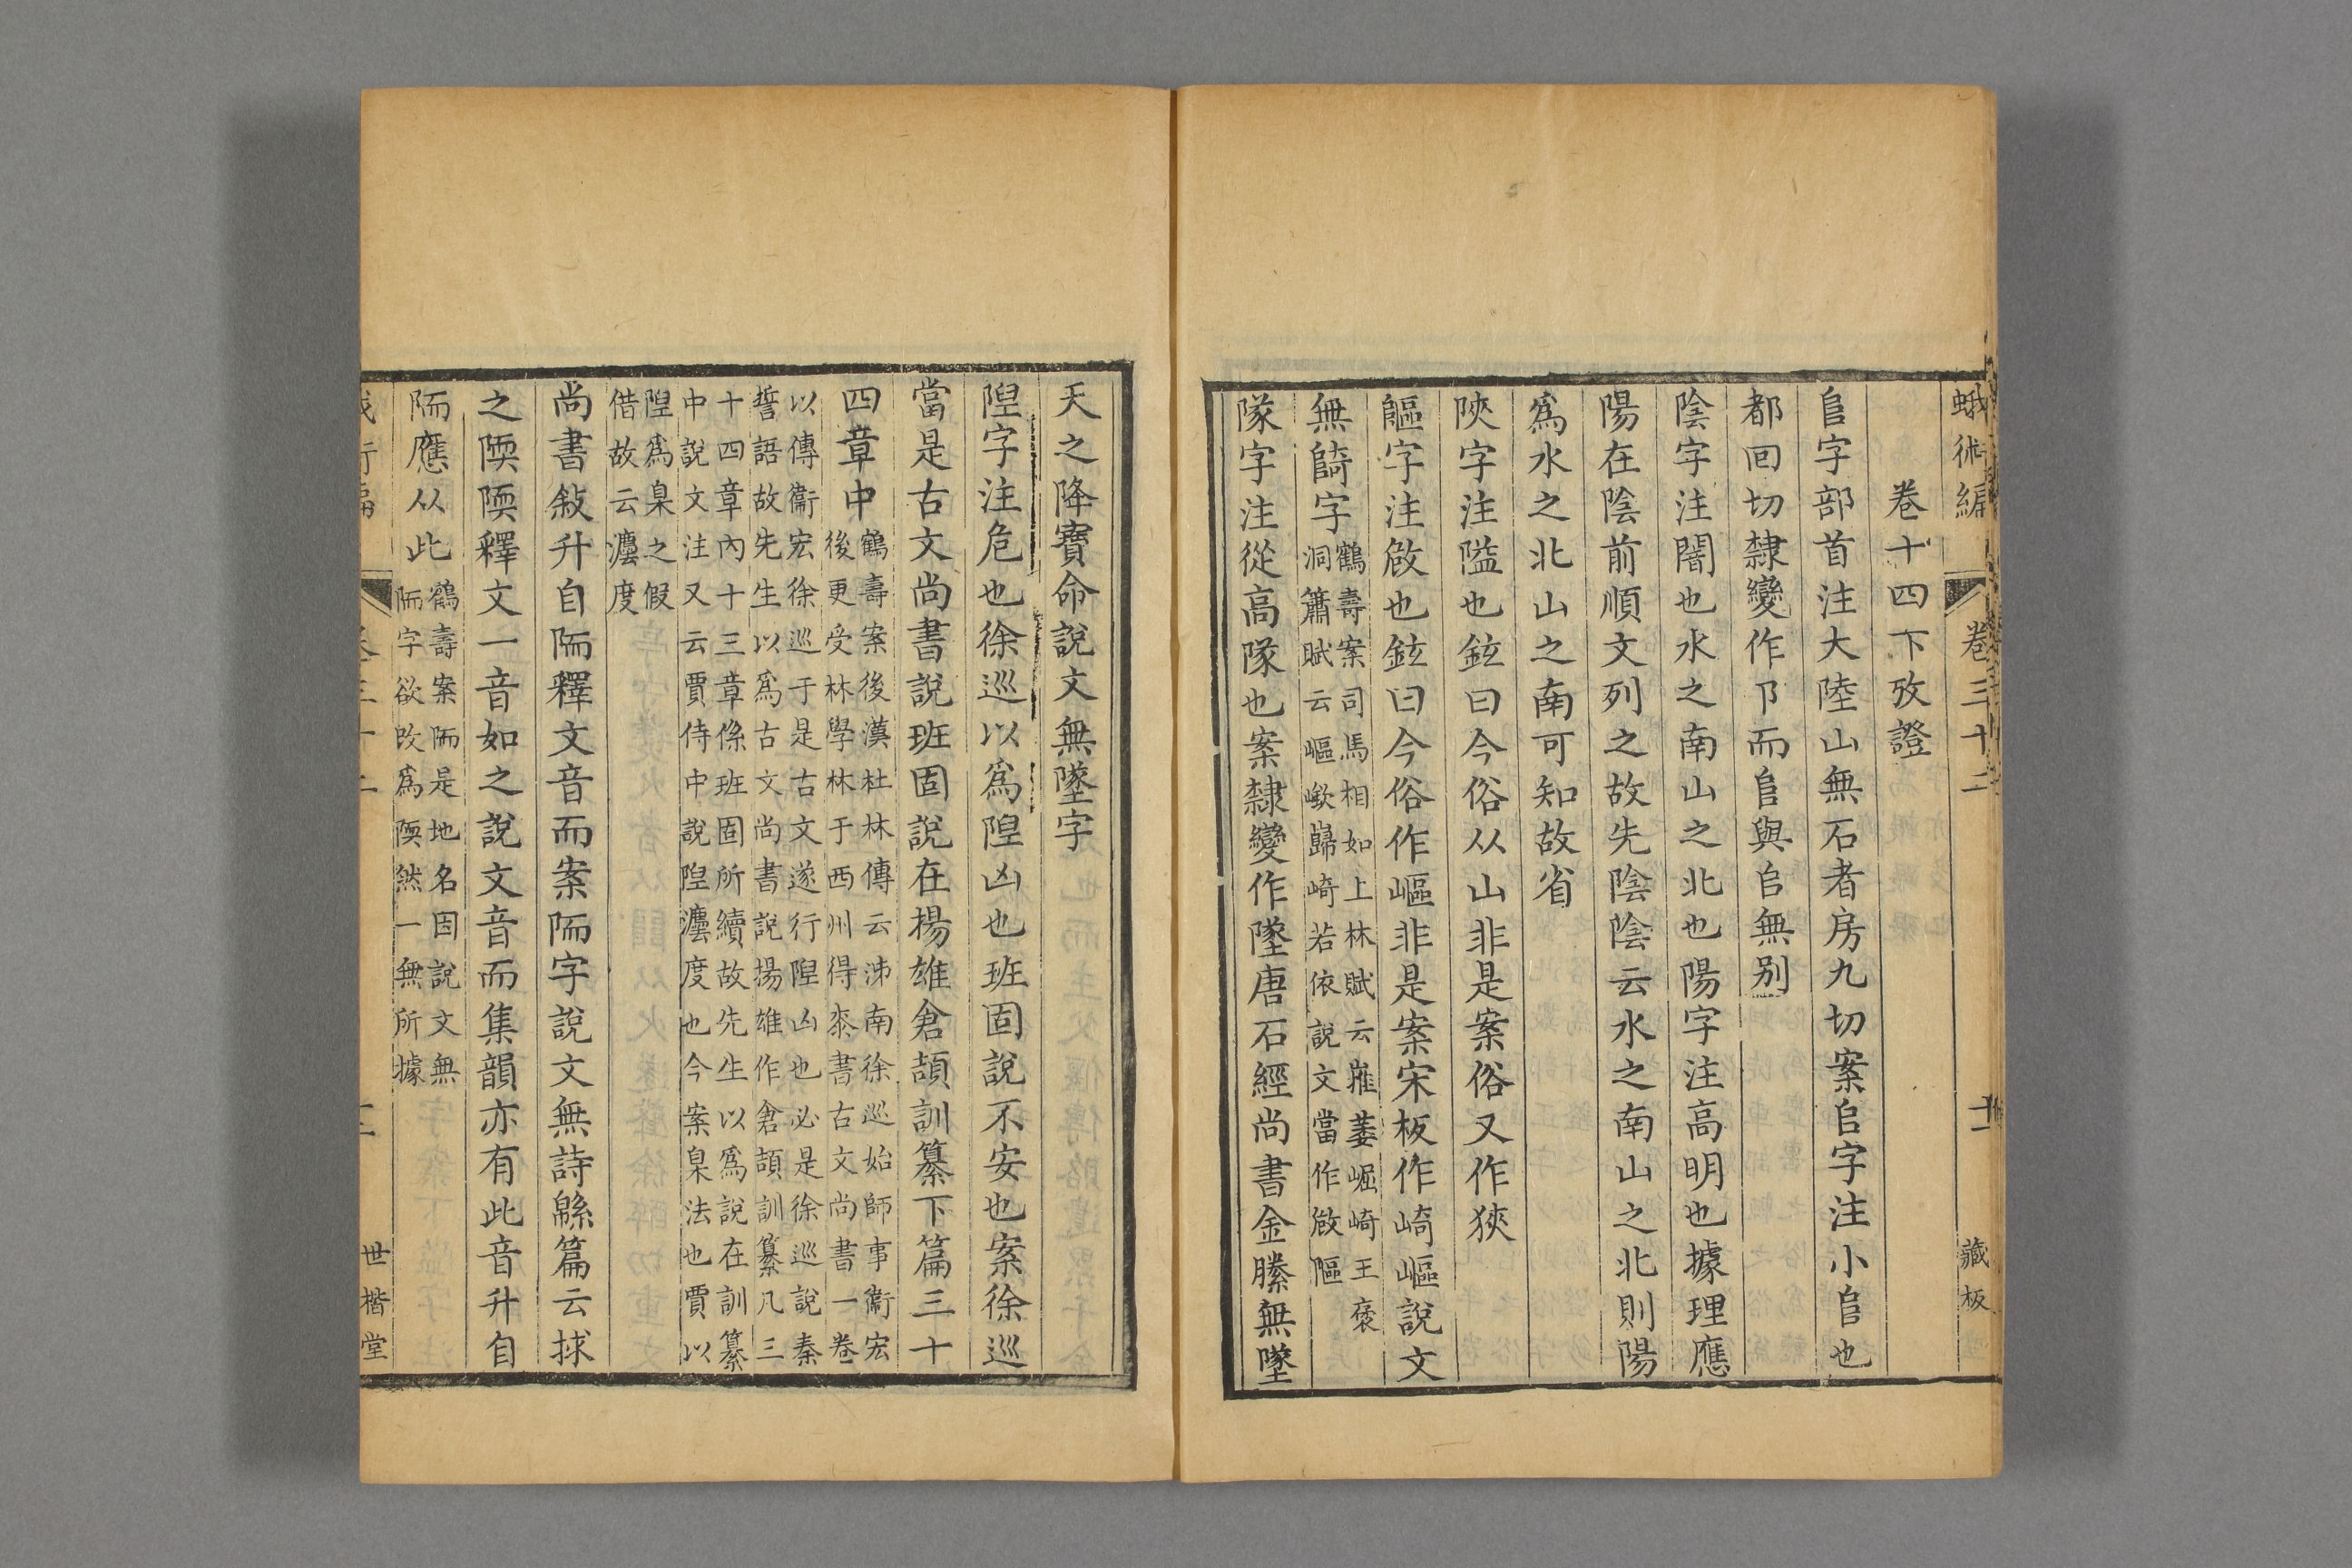 蛾術編 卷三十二 十一 藏板
卷十四下攷證
𨸏字部首注大陸山無石者房九切案𠂤字注小𨸏也
都回切隸變作阝而𨸏與𠂤無別
陰字注闇也水之南山之北也陽字注高明也據理應
陽在陰前順文列之故先陰陰云水之南山之北則陽
爲水之北山之南可知故省
陝字注隘也鉉曰今俗从山非是案俗又作狹
䧢字注𨻰也鉉曰今俗作嶇非是案宋板作崎嶇說文
無𨺬字
鶴壽案司馬相如上林賦云摧萎崛崎王褒
洞簫賦云嶇嶔巋崎若依說文當作𨻰嶇
隊字注從高隊也案隸變作墜唐石經尚書金縢無墜
天之降寶命說文無墜字
隉字注危也徐巡以爲隉凶也班固說不安也案徐巡
當是古文尚書說班固說在楊雄倉頡訓纂下篇三十
四章中
鶴壽案後漢杜林傳云沛南徐巡始師事衞宏
後更受林學林于西州得桼書古文尚書一卷
以傳衞宏徐巡于是古文遂行隉凶也必是徐巡說秦
誓語故先生以爲古文尚書說揚雄作倉頡訓纂凡三
十四章內十三章係班固所續故先生以爲說在訓纂
中說文注又云賈侍中說隉灋度也今案臬法也賈以
隉爲臬之假
借故云灋度
尚書敍升自陑釋文音而案陑字說文無詩緜篇云捄
之陾陾釋文一音如之說文音而集韻亦有此音升自
陑應从此
鶴壽案陑是地名因說文無
陑字欲改爲陾然一無所據
世楷堂